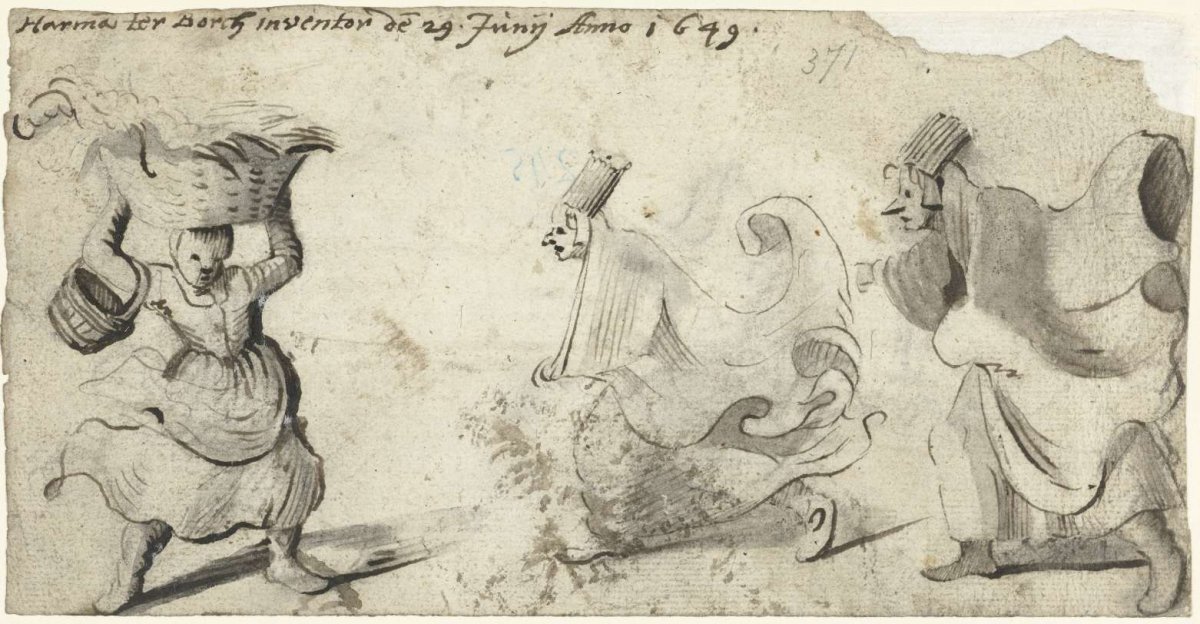 Harmã ter Borch inventor dē 29 Junij Anno 1649.
371